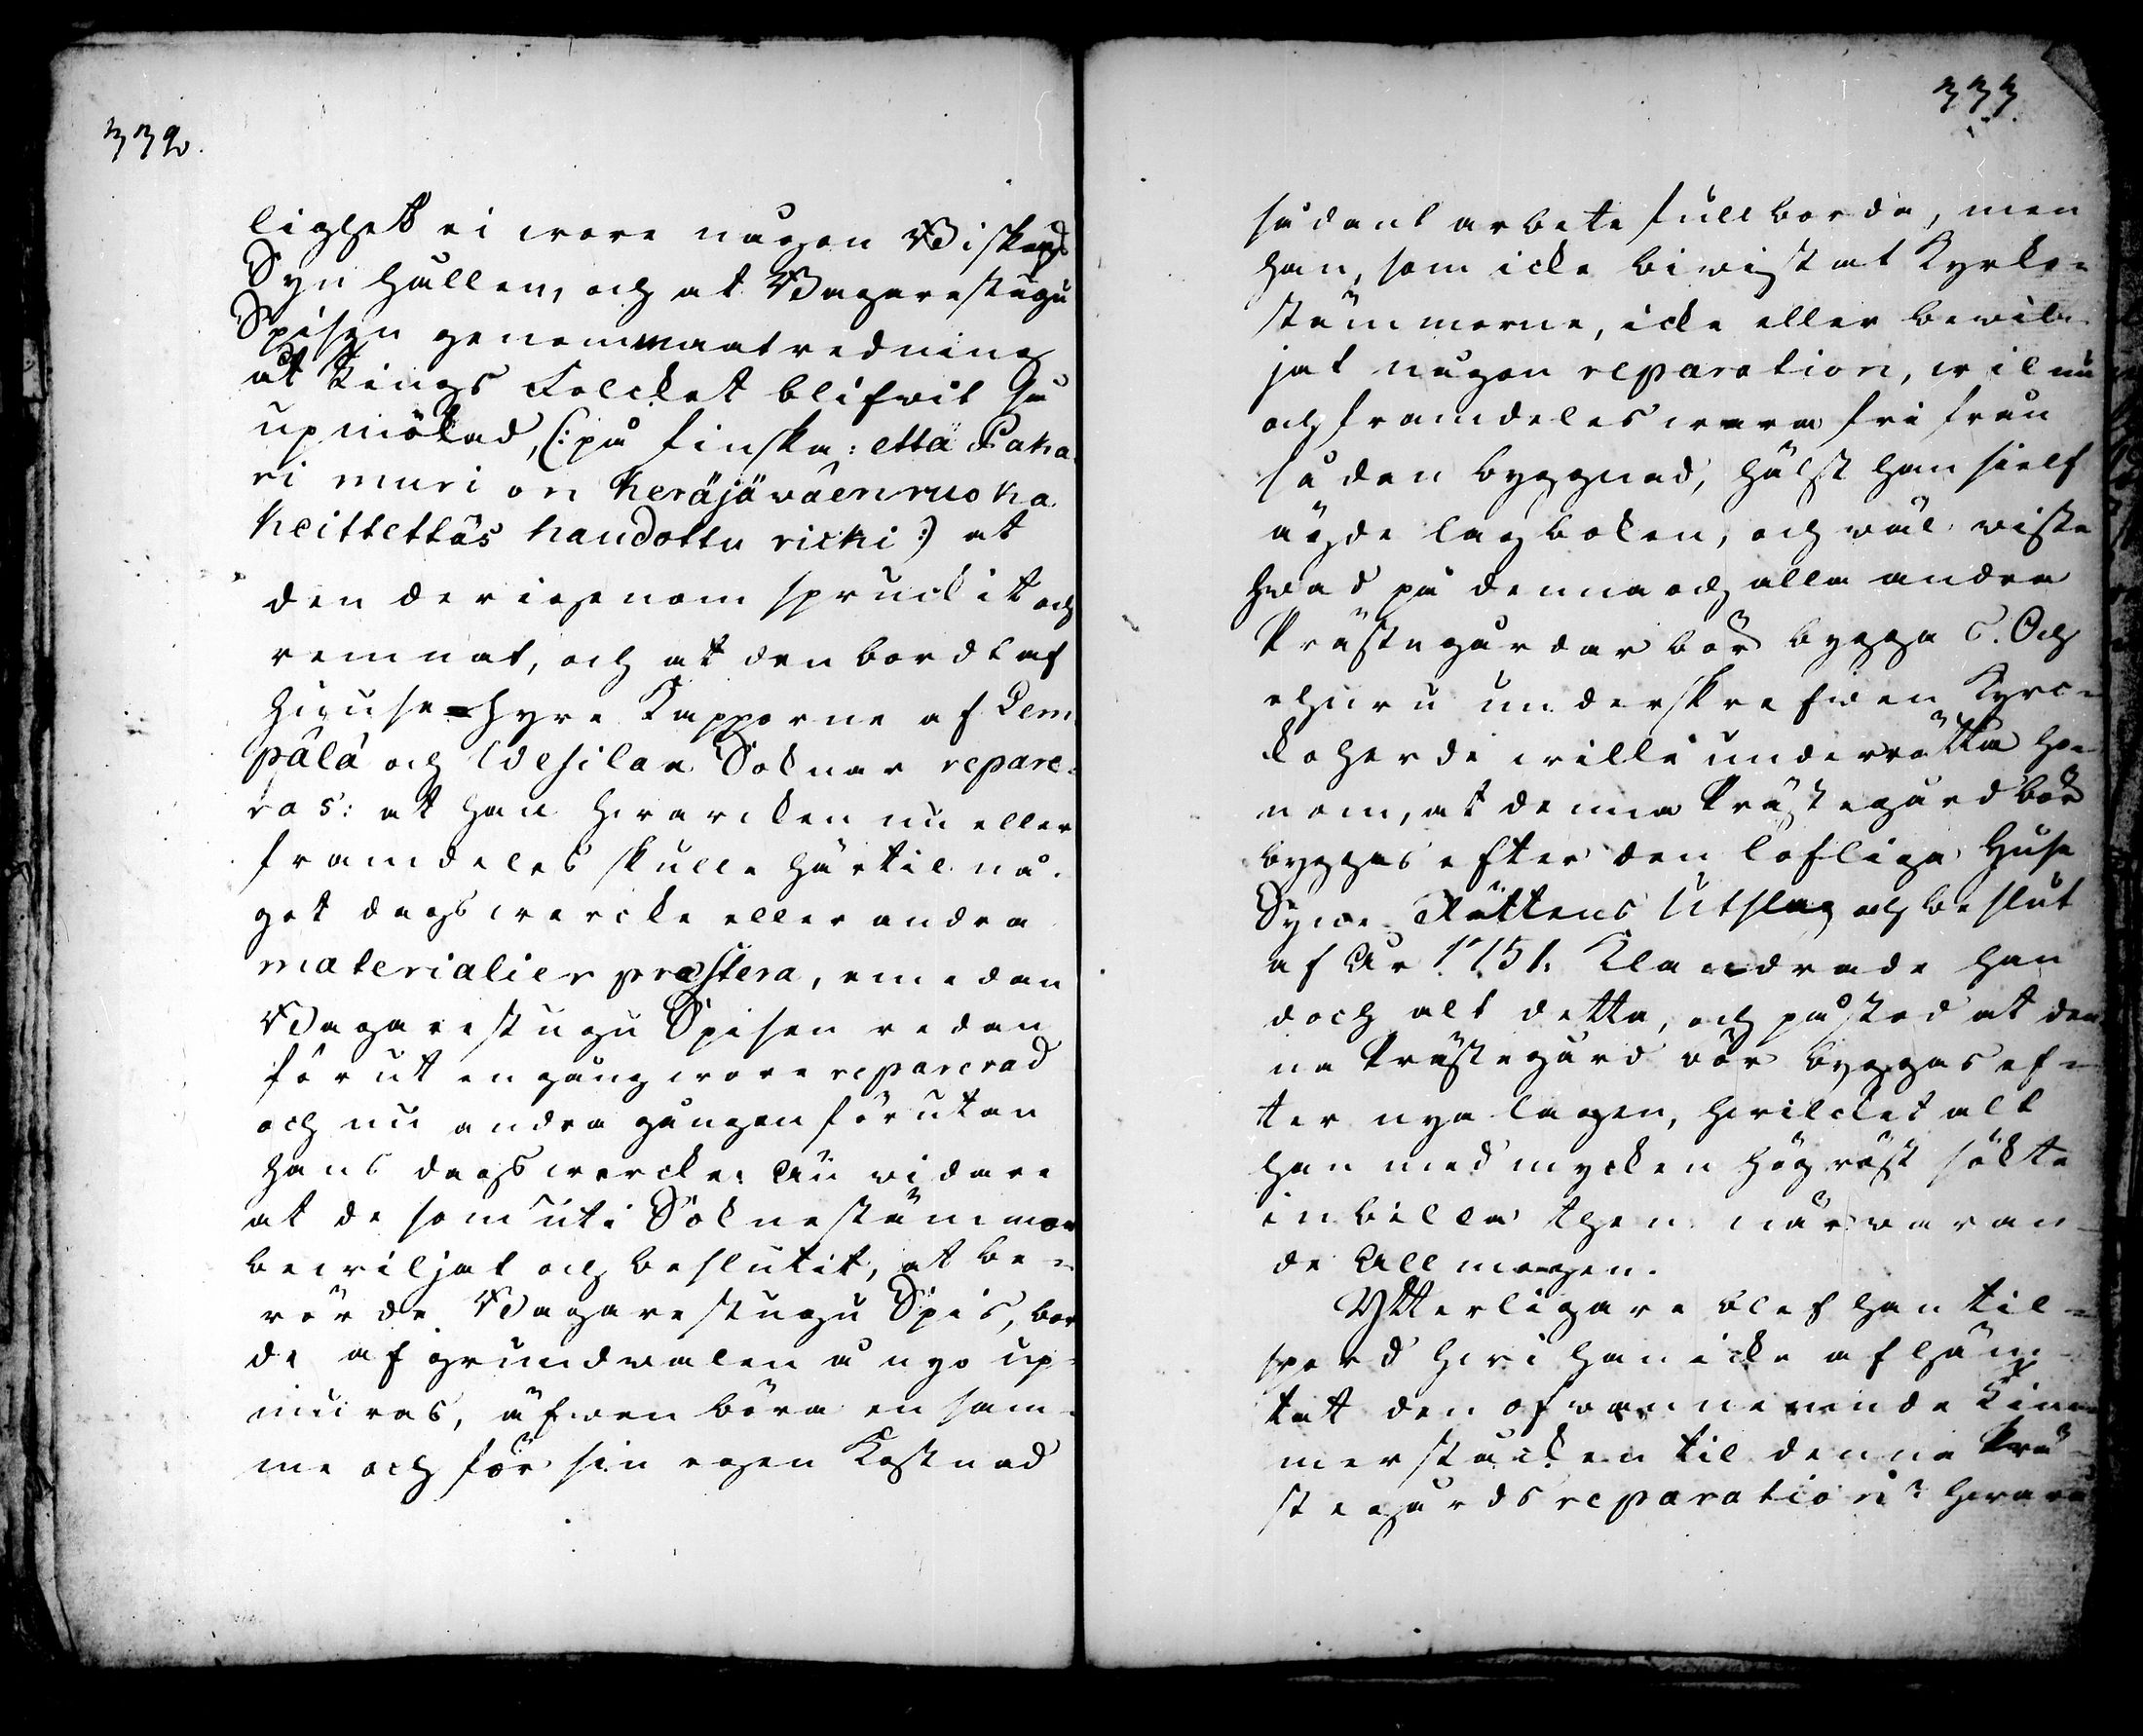 332.
lighet ei wore någon Biskops
Syn hållen, och at Bagarestugu
Spisen genom matredning
åt Tings Folcket blifwit så
upmötad, (: på finska: että Paka¬
ri muri on keräjäwäen ruoka
keittettäs haudottu ricki :) at
den derigenom spruckit och
remnat, och at den bordt af
Giguse-hyre Kapporne af Lem¬
pälä och Wesilax Soknar repare¬
ras: at han hwarcken nu eller
framdeles skulle härtil nå¬
got dagswercke eller andra
materialier præstera, emedan
Bagarestugu Spisen redan
förut en gång wore reparerad
och nu andra gången förutan
hans dagswercke: Än widare
at de som uti Soknestämmor
bewiljat och beslutit, at be¬
rörde Bagarestugu Spis, bor¬
de af grundwalen å nyo up¬
muras, äfwen böra en sam¬
me och för sin egen Kostnad
333.
sådant arbete fullborda, men
han, som icke biwistat Kyrko¬
stämmorne, icke eller bewil¬
jat någon reparation, wil nu
och framdeles wara fri från
sådan byggnad, hälst han sielf
ägde lagboken, och wäl wiste
hwad på denna och alla andra
Prästegårdar bör bygga s. Och
ehuru underskrefwen Kyrc¬
koherde wille underrätta ho¬
nom, at denna Prästegård bör
byggas efter den lofliga Huse
Syne-Rättens Utslag och beslut
af År 1751. Klandrade han
doch alt detta, och påstod at den¬
na Prästegård bör byggas ef¬
ter nya lagen, hwilcket alt
han med mycken hög röst sökte
inbilla then närwaran¬
de Allmogen.
Ytterligare blef han til¬
spord hwi han icke afhäm¬
tat den ofwannemnde Tim¬
merstacken til denna Prä¬
stegårds reparation? hwara